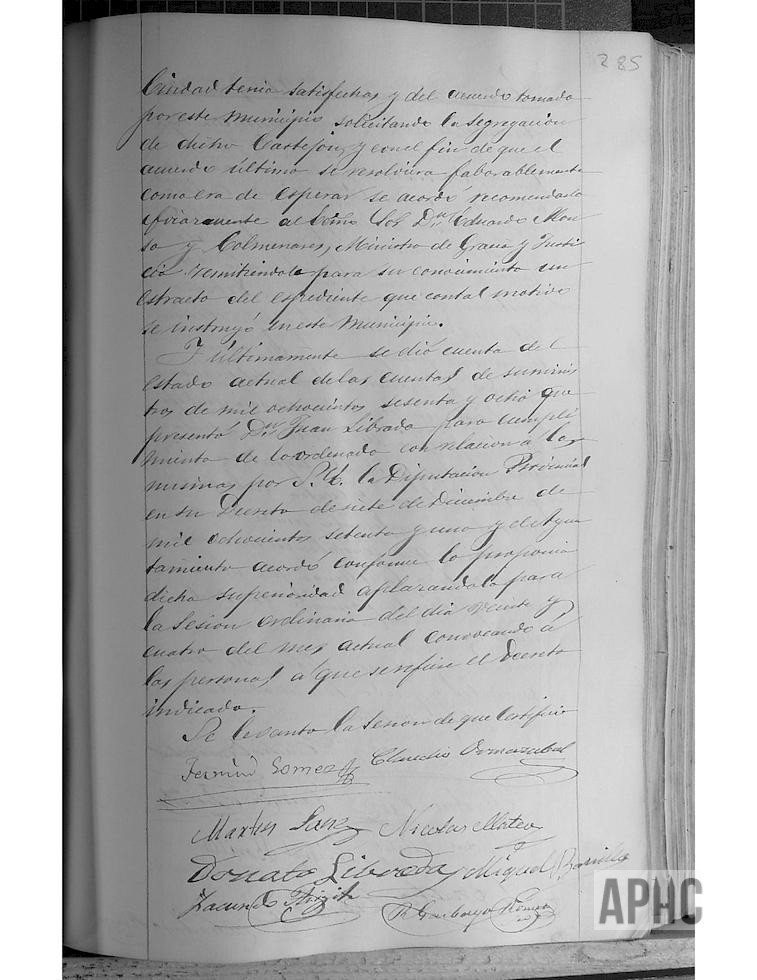 285
Ciudad tenia satisfechas y del acuerdo tomado
por este Municipio solicitando la segregación
de dicho Castejon, y con el fin de que el
acuerdo último se resolviera faborablemente
como era de esperar se acordó recomendarlo
eficazmente al Excmo Sor Dn Eduardo Alon
so y Colmenares, Ministro de Gracia y Justi
cia remitiendole para su conocimiento un
estracto del espediente que con tal motivo
se instruyó en este Municipio.
Y últimamente se dió cuenta del
estado actual de las cuentas de suminis
tros de mil ochocientos sesenta y ocho que
presentó Dn Juan Librada para cumpli
miento de lo ordenado con relacion á las
mismas por S.E. la Diputacion Provincial
en su Decreto de siete de Diciembre de
mil ochocientos setenta y uno y el Ayun
tamiento acordó conforme lo proponia
dicha superioridad aplazandolo para
la Sesion ordinaria del dia veinte y
cuatro del mes actual convocando á
las personas á que se refiere el Decreto
indicado.
Se levanto la Sesion de que Certifico
Fermin Gomez Claudio Ormazabal
Martin Sanz Nicolas Mateo
Donato Librada Miguel Bonilla
Facundo
Gomez
APHC